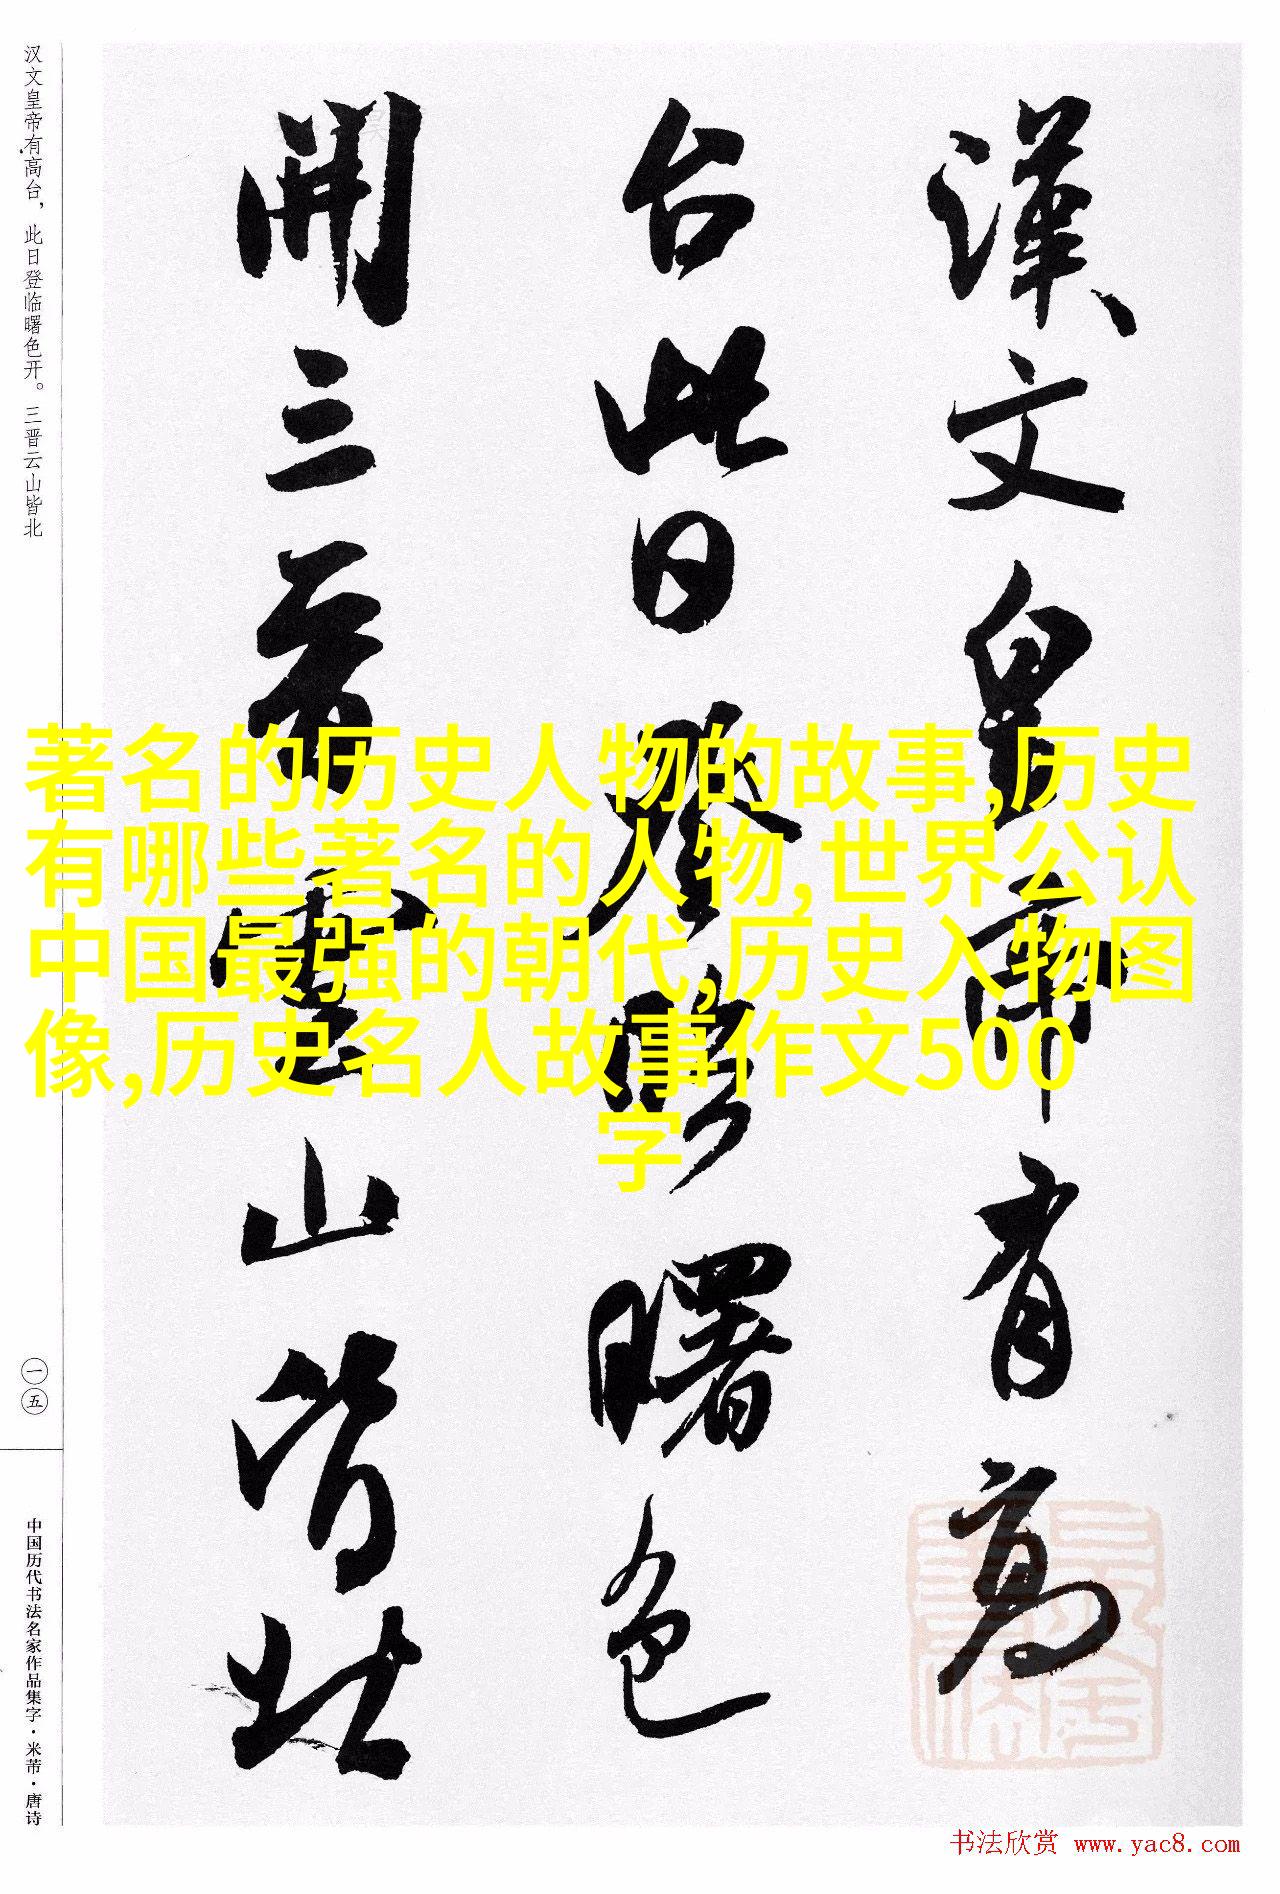 漢文皇帝有高
台此日登臨曙色
開三晉雲山皆北
汉文皇帝有高台，此日登临曙色开。三晋云山皆北
一五
中国历代书法名家作品集字·米芾·唐诗
著名的历史人物的故事,历史
有哪些著名的人物,世界公认
中国最强的朝代,历史入物图
像,历史名人故事作文500
字
书法欣赏 www.yac8.com